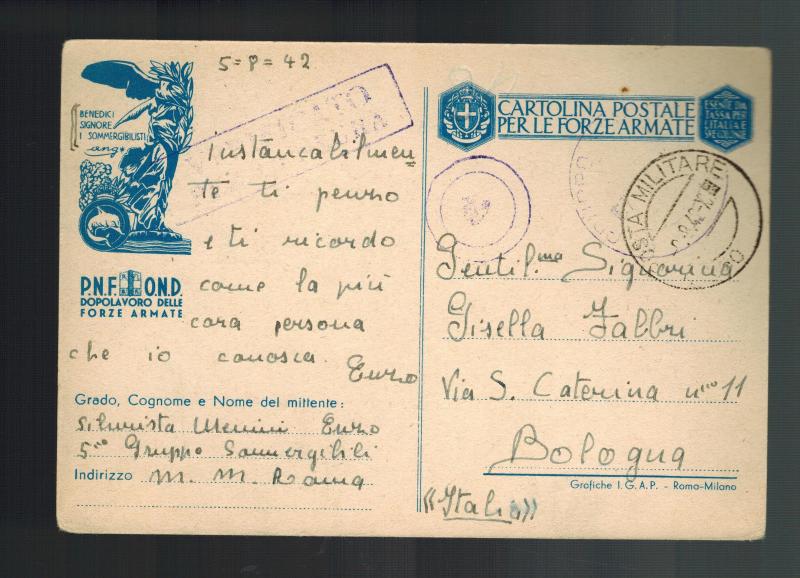 5=8=42
BENEDICI
SIGNORE
I SOMMERGIBILISTI
Instancabilmen
te ti penso
e ti ricordo
come la più
cara persona
che io conosca.
Enzo
P.N.F. O.N.D.
DOPOLAVORO DELLE
FORZE ARMATE
Grado, Cognome e Nome del mittente:
silurista Menini Enzo
5º Gruppo Sommergibili
Indirizzo M. M. Roma
CARTOLINA POSTALE
PER LE FORZE ARMATE
ESENTE DA
TASSA PER
L'ITALIA E
POSTA MILITARE
Gentil.ma Signorina
Gisella Fabbri
Via S. Caterina nº 11
Bologna
Grafiche I.G.A.P. - Roma-Milano
«Italia»